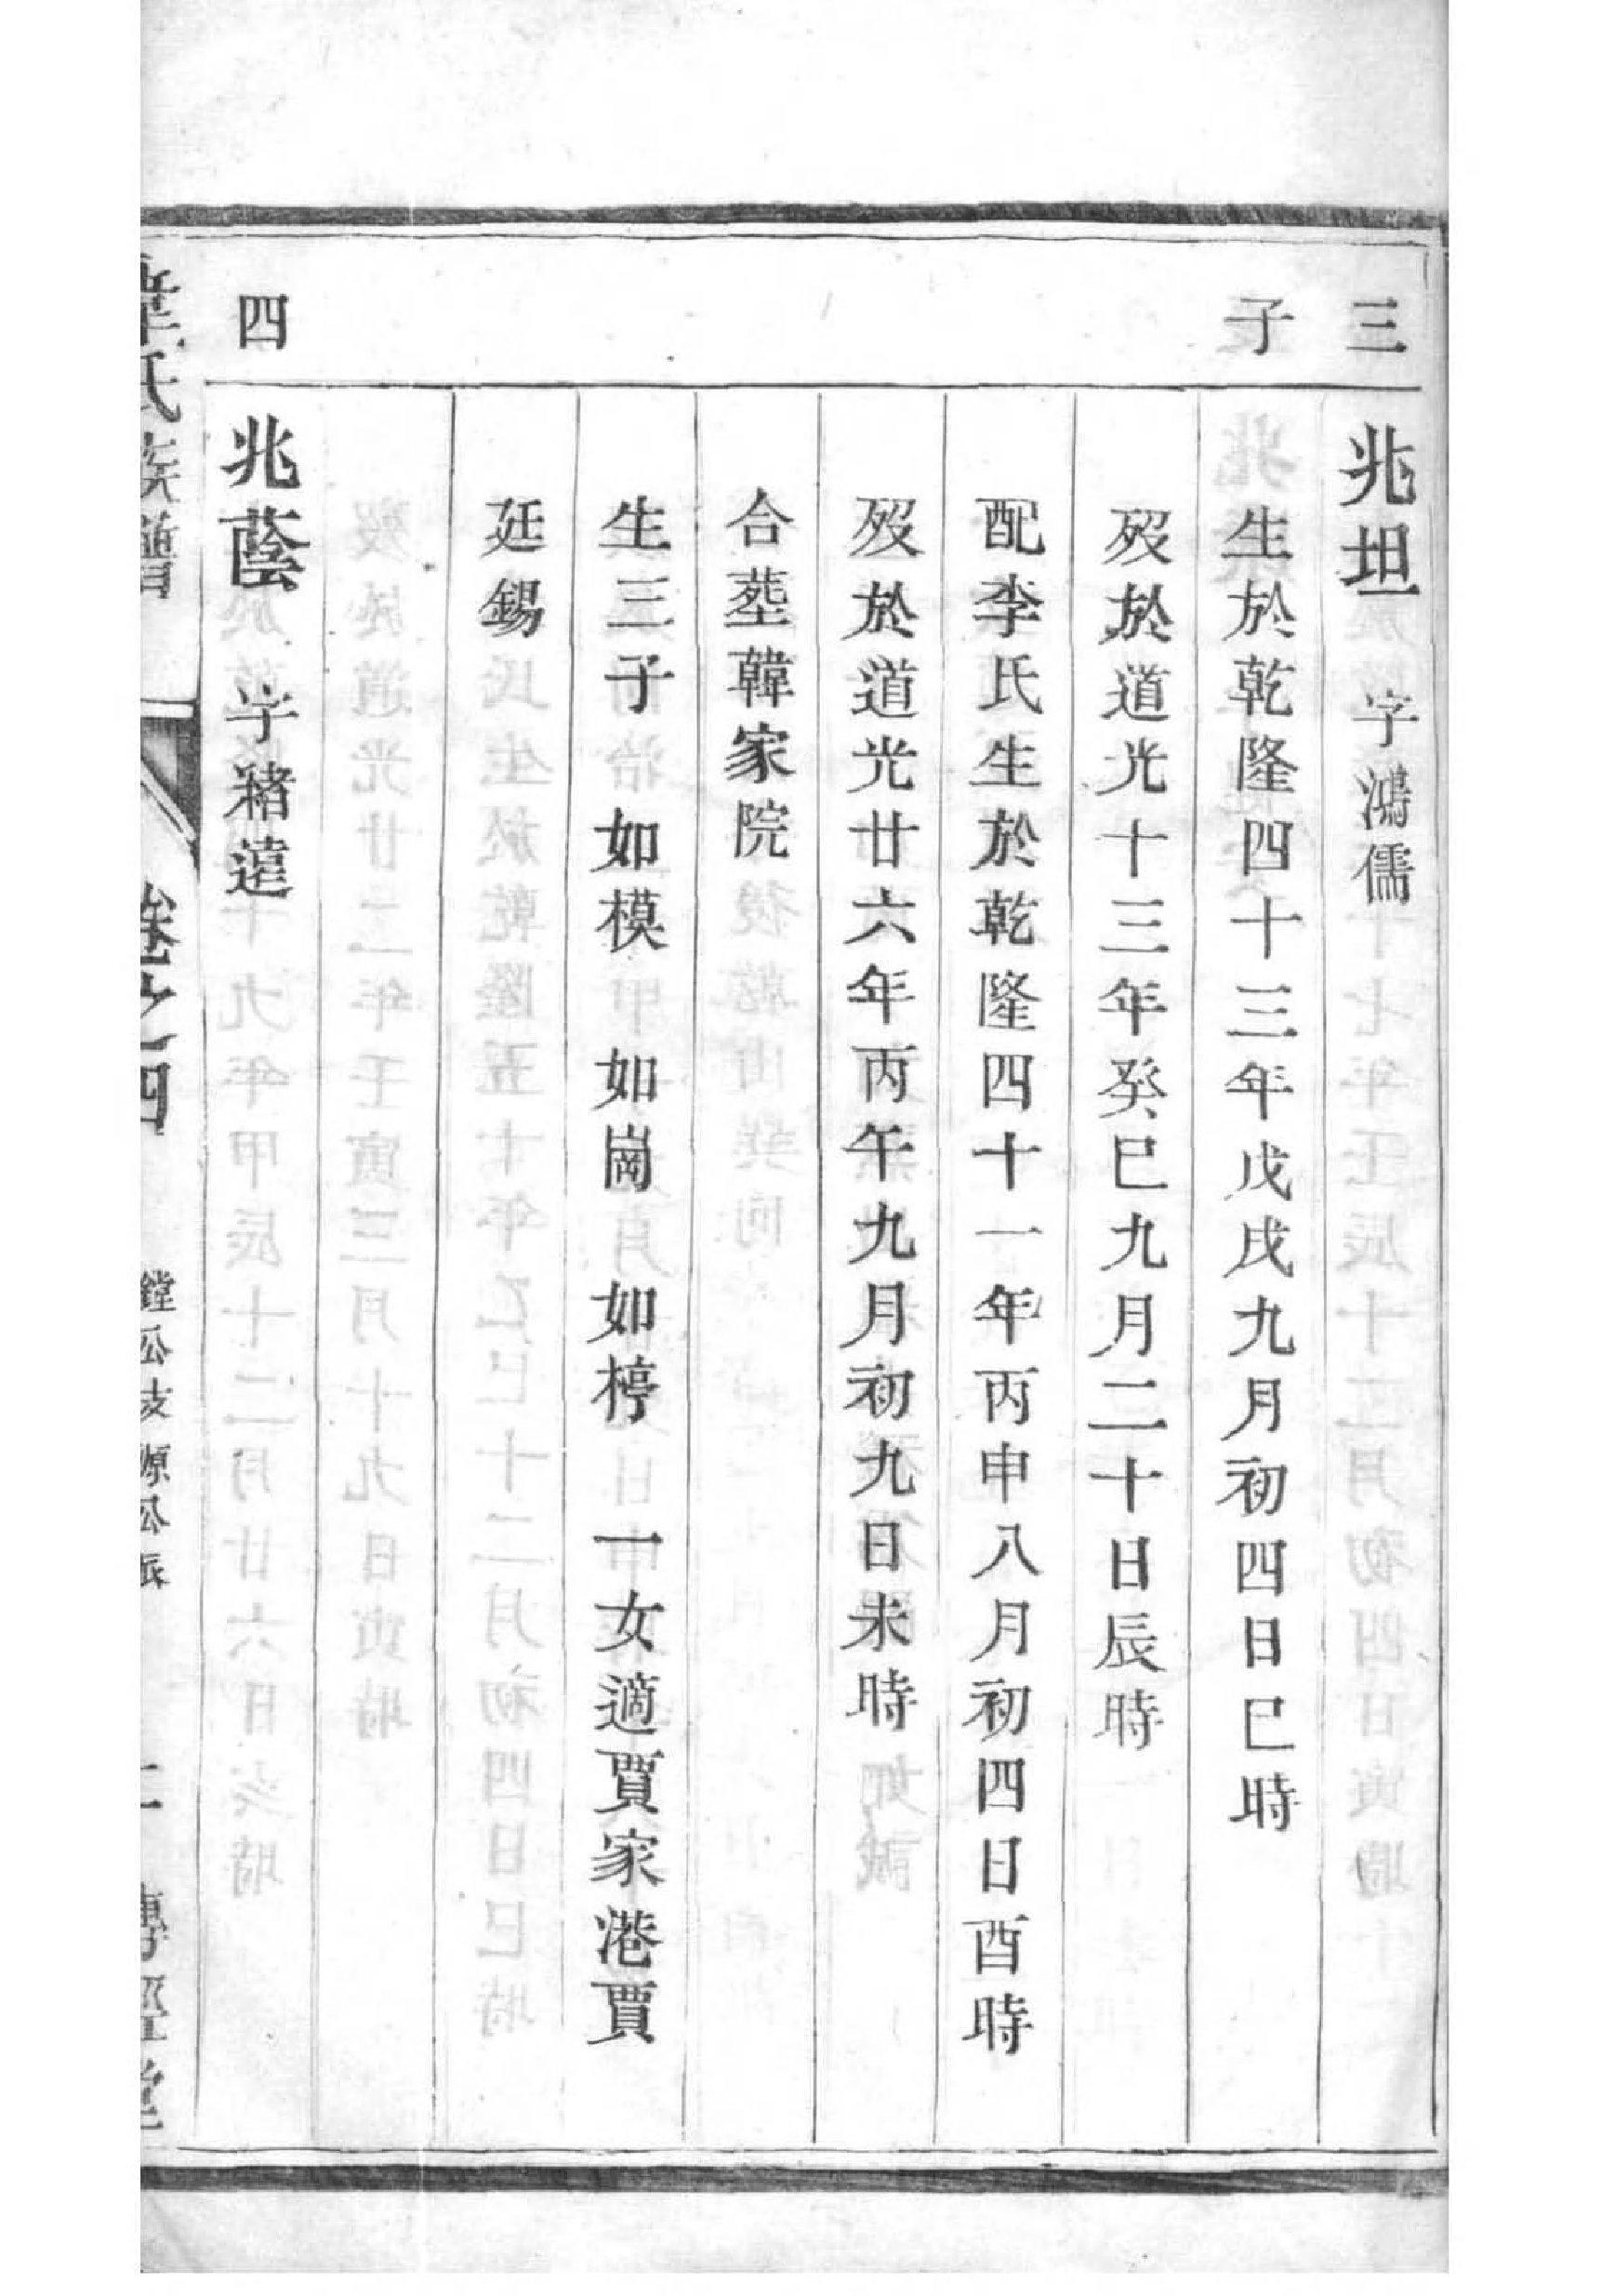 三子
兆坦 字鴻儒
生於乾隆四十三年戊戌九月初四日巳時
歿於道光十三年癸巳九月二十日辰時
配李氏生於乾隆四十一年丙申八月初四日酉時
歿於道光廿六年丙午九月初九日未時
合塟韓家院
生三子 如模 如崗 如椁 一女適賈家港賈
廷錫
四
兆蔭 字緒遠
氏族譜 卷之四 鏜公支源公派 二 傳經堂